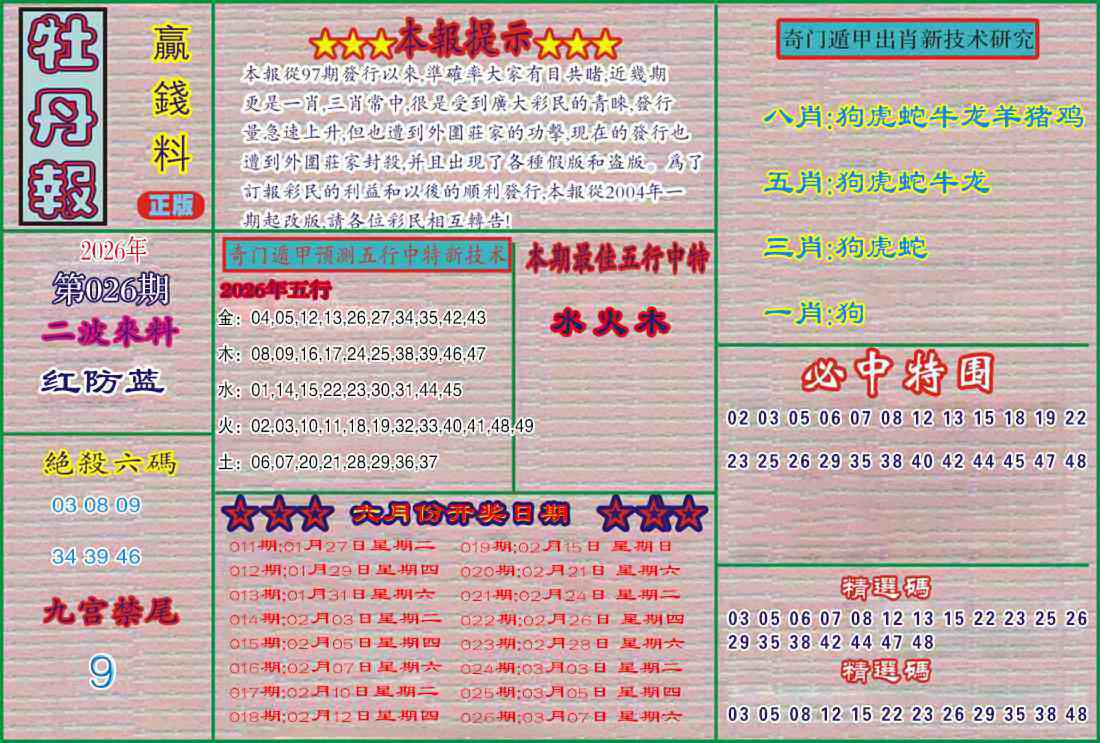 牡丹報
贏錢料
正版
★★★本報提示★★★
本報從97期發行以來,準確率大家有目共睹,近幾期
更是一肖,三肖常中,很是受到廣大彩民的青睞,發行
量急速上升,但也遭到外圍莊家的功擊,現在的發行也
遭到外圍莊家封殺,并且出現了各種假版和盗版。爲了
訂報彩民的利益和以後的順利發行,本報從2004年一
期起改版,請各位彩民相互轉告!
2026年
第026期
二波來料
红防蓝
絕殺六碼
03 08 09
34 39 46
九宫禁尾
9
奇门遁甲預测五行中特新技术
2026年五行
金：04,05,12,13,26,27,34,35,42,43
木：08,09,16,17,24,25,38,39,46,47
水：01,14,15,22,23,30,31,44,45
火：02,03,10,11,18,19,32,33,40,41,48,49
土：06,07,20,21,28,29,36,37
本期最佳五行中特
水火木
☆☆☆ 六月份开奖日期 ☆☆☆
011期:01月27日星期二 019期:02月15日 星期日
012期:01月29日星期四 020期:02月21日 星期六
013期:01月31日星期六 021期:02月24日 星期二
014期:02月03日星期二 022期:02月26日 星期四
015期:02月05日星期四 023期:02月28日 星期六
016期:02月07日星期六 024期:03月03日 星期二
017期:02月10日星期二 025期:03月05日 星期四
018期:02月12日星期四 026期:03月07日 星期六
奇门遁甲出肖新技术研究
八肖:狗虎蛇牛龙羊猪鸡
五肖:狗虎蛇牛龙
三肖:狗虎蛇
一肖:狗
必中特围
02 03 05 06 07 08 12 13 15 18 19 22
23 25 26 29 35 38 40 42 44 45 47 48
精選碼
03 05 06 07 08 12 13 15 22 23 25 26
29 35 38 42 44 47 48
精選碼
03 05 08 12 15 22 23 26 29 35 38 48